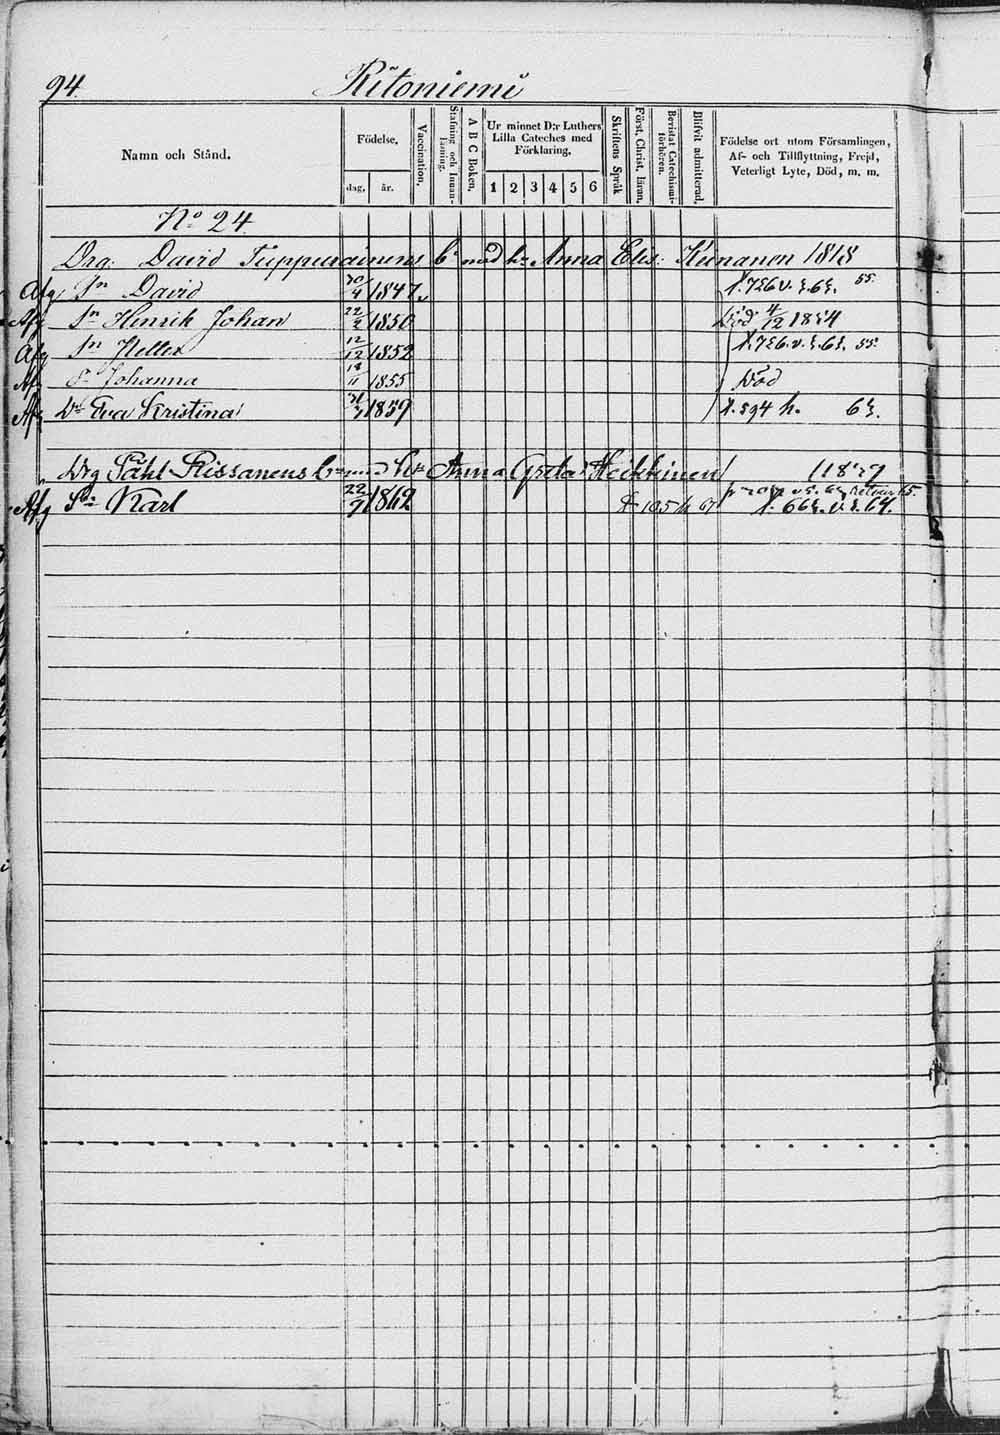 94.
Ritoniemi
Namn och Stånd.
Födelse.
dag. år.
Vaccination.
Stafning och Innan-läsning.
A B C Boken.
Ur minnet D:r Luthers
Lilla Cateches med
Förklaring.
1 2 3 4 5 6
Skriftens Språk
Först. Christ. läran.
Bevistat Catechismi-förhören.
Blifvit admitterad.
Födelse ort utom Församlingen,
Af- och Tillflyttning, Frejd,
Veterligt Lyte, Död, m. m.
No 24
Drg: David Tuppurainens bn med h: Anna Elis: Kinnanen 1818
Afg Sn David 1847
Afg Sn Henrik Johan 22/2 1850 Död 4/12 1854
Afg Sn Petter 12/12 1852
Johanna 1855 Död
Afg Dr Eva Kristina 1859 f. 594 h. 63.
Drg Påhl Rissanens bn med h: Anna Greta Heikkinen
Afg Sn Karl 22/7 1862 105 h 67